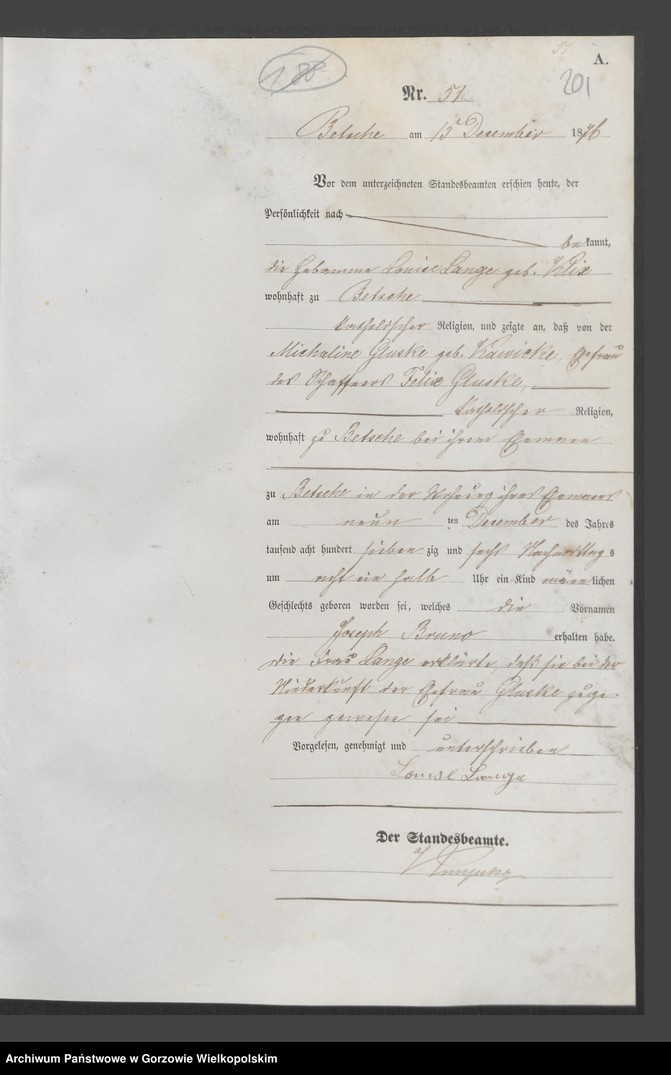 A.
201
188
Nr. 51.
Betsche am 15 December 1876
Vor dem unterzeichneten Standesbeamten erschien heute, der
Persönlichkeit nach
bekannt,
die Hebamme Louise Lange geb. Klix
wohnhaft zu Betsche
katholischer Religion, und zeigte an, daß von der
Michaline Gluske geb. Kawicke, Ehefrau
des Schaffners Felix Gluske,
katholischer Religion,
wohnhaft zu Betsche bei ihrem Ehemanne
zu Betsche in der Wohnung ihres Ehemannes
am neun ten December des Jahres
tausend acht hundert sieben zig und sechs Nachmittags
um acht ein halb Uhr ein Kind männlichen
Geschlechts geboren worden sei, welches die Vornamen
Joseph Bruno erhalten habe.
Die Frau Lange erklärte, daß sie bei der
Niederkunft der Ehefrau Gluske zuge-
gen gewesen sei
Vorgelesen, genehmigt und unterschrieben
Louise Lange
Der Standesbeamte.
Archiwum Państwowe w Gorzowie Wielkopolskim